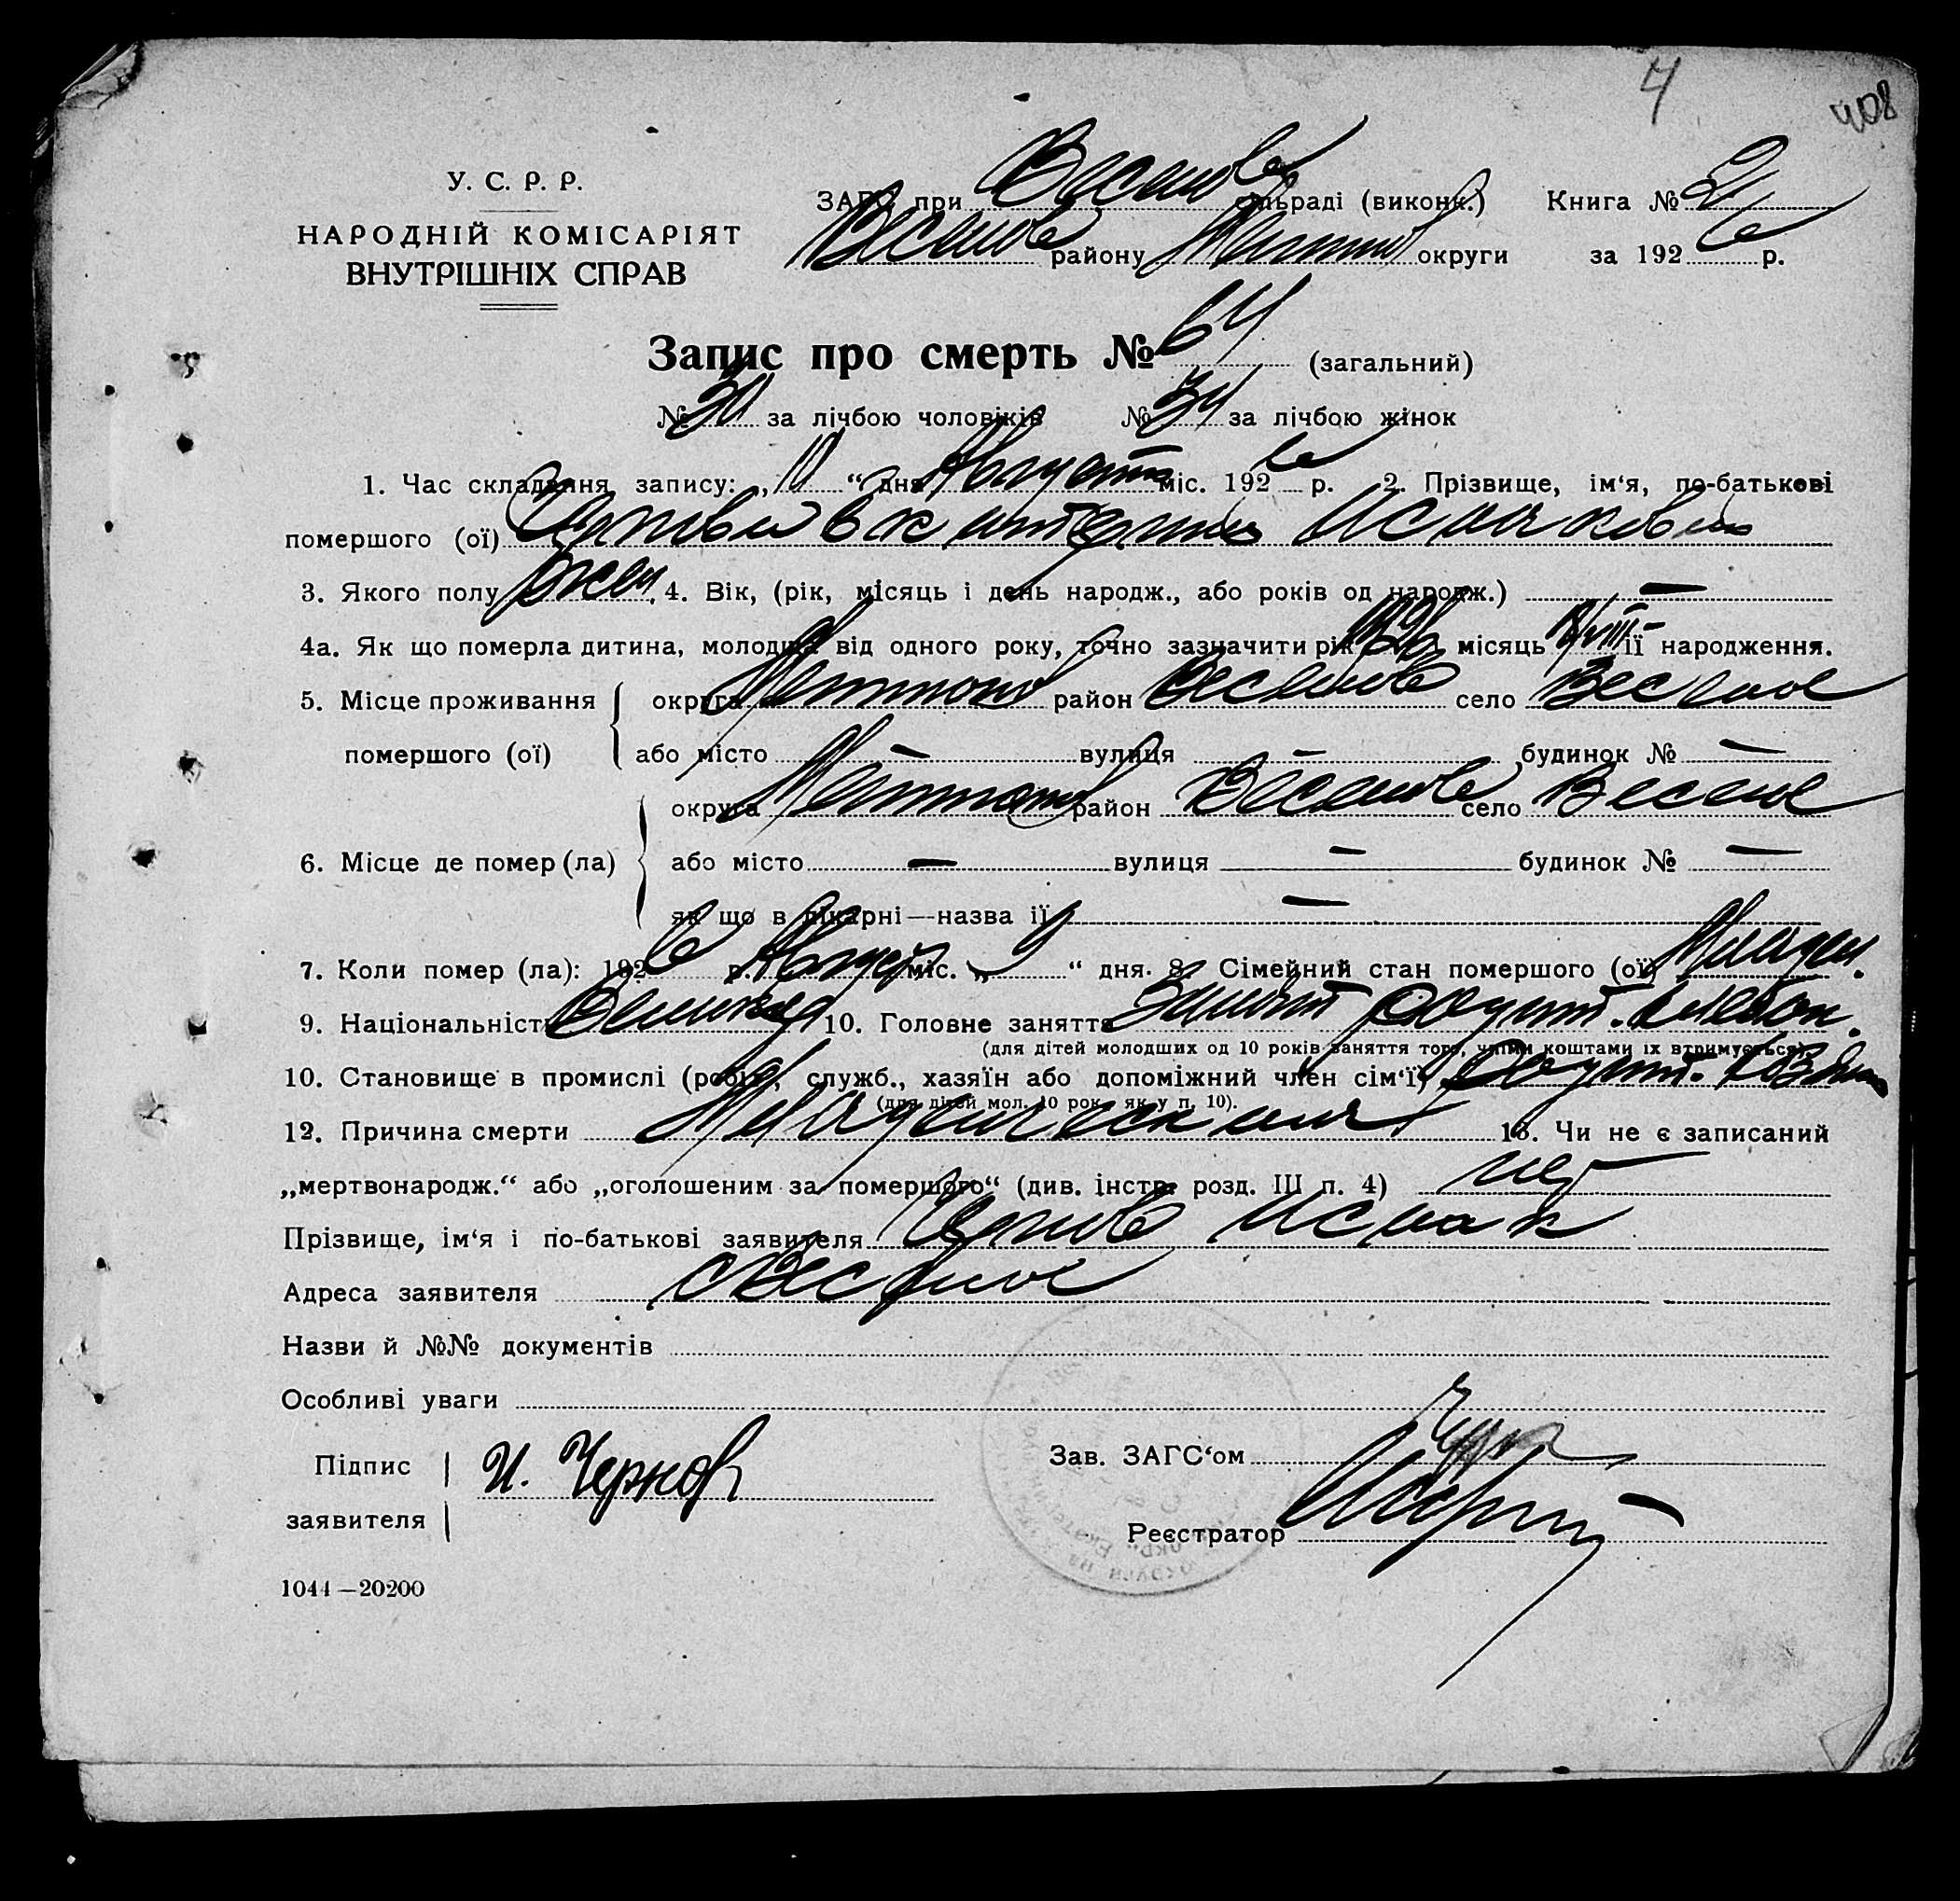 4
408
У. С. Р. Р.
НАРОДНІЙ КОМІСАРІЯТ
ВНУТРІШНІХ СПРАВ
ЗАГС при Веселов сільраді (виконк.) Книга № 2
Веселов району Мелитоп округи за 1926 р.
Запис про смерть № 64 (загальний)
№ 30 за лічбою чоловіків № 34 за лічбою жінок
1. Час складання запису: „10“ дня Август міс. 1926 р. 2. Прізвище, ім‘я, по-батькові
помершого (ої) Чернова Екатерина Исааковна
3. Якого полу жен 4. Вік, (рік, місяць і день народж., або років од народж.) —
4а. Як що померла дитина, молодша від одного року, точно зазначити рік 1926 місяць VIII- її народження.
5. Місце проживання округа Мелитоп район Веселов село Веселое
помершого (ої) або місто — вулиця — будинок № —
округа Мелитоп район Веселов село Веселое
6. Місце де помер (ла) або місто — вулиця — будинок № —
як що в лікарні—назва її —
7. Коли помер (ла): 1926 р. Август міс. „9“ дня. 8. Сімейний стан помершого (ої) Младен.
9. Національність 10. Головне заняття
(для дітей молодших од 10 років заняття того, чиїми коштами їх втримується).
10. Становище в промислі (робіт., служб., хазяїн або допоміжний член сім‘ї)
(для дітей мол. 10 рок., як у п. 10).
12. Причина смерти Младенческая 13. Чи не є записаний
„мертвонародж.“ або „оголошеним за помершого“ (див. інстр. розд. III п. 4) нет
Прізвище, ім‘я і по-батькові заявителя Чернов Исаак
Адреса заявителя с Веселое
Назви й №№ документів
Особливі уваги
Підпис заявителя И. Чернов
Зав. ЗАГС‘ом
Реєстратор
1044—20200